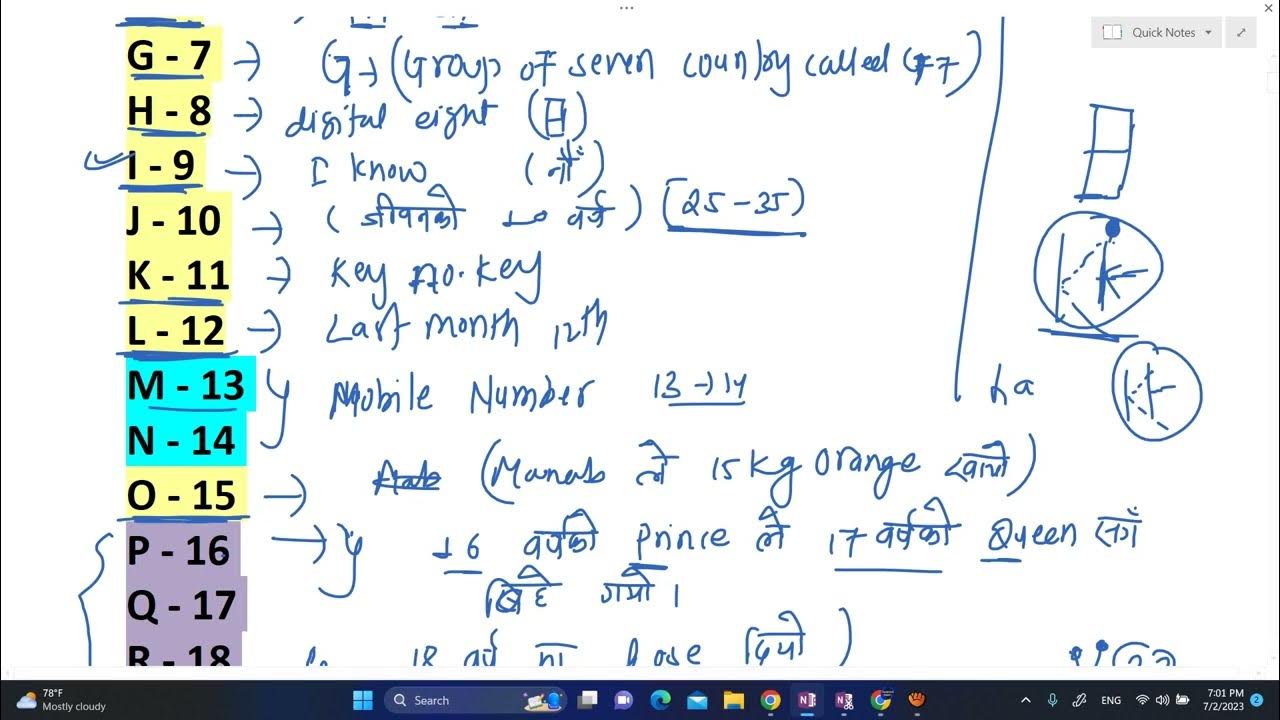 Quick Notes
G - 7 → G → (Group of seven country called G7)
H - 8 → digital eight (日)
I - 9 → I know (नौ)
J - 10 → (जीवनको 10 वर्ष) [25 - 35)
K - 11 → Key no. key
L - 12 → Last month 12th
M - 13 Mobile Number 13 → 14
ha
N - 14
(Manab ले 15 kg orange खायो)
O - 15 →
P - 16 → 16 वर्षको prince ले 17 वर्षको Queen सँग
Q - 17 गयो ।
R - 18 18 वर्ष मा Rose दियो )
78°F
Mostly cloudy
Search
ENG
7:01 PM
7/2/2023
2